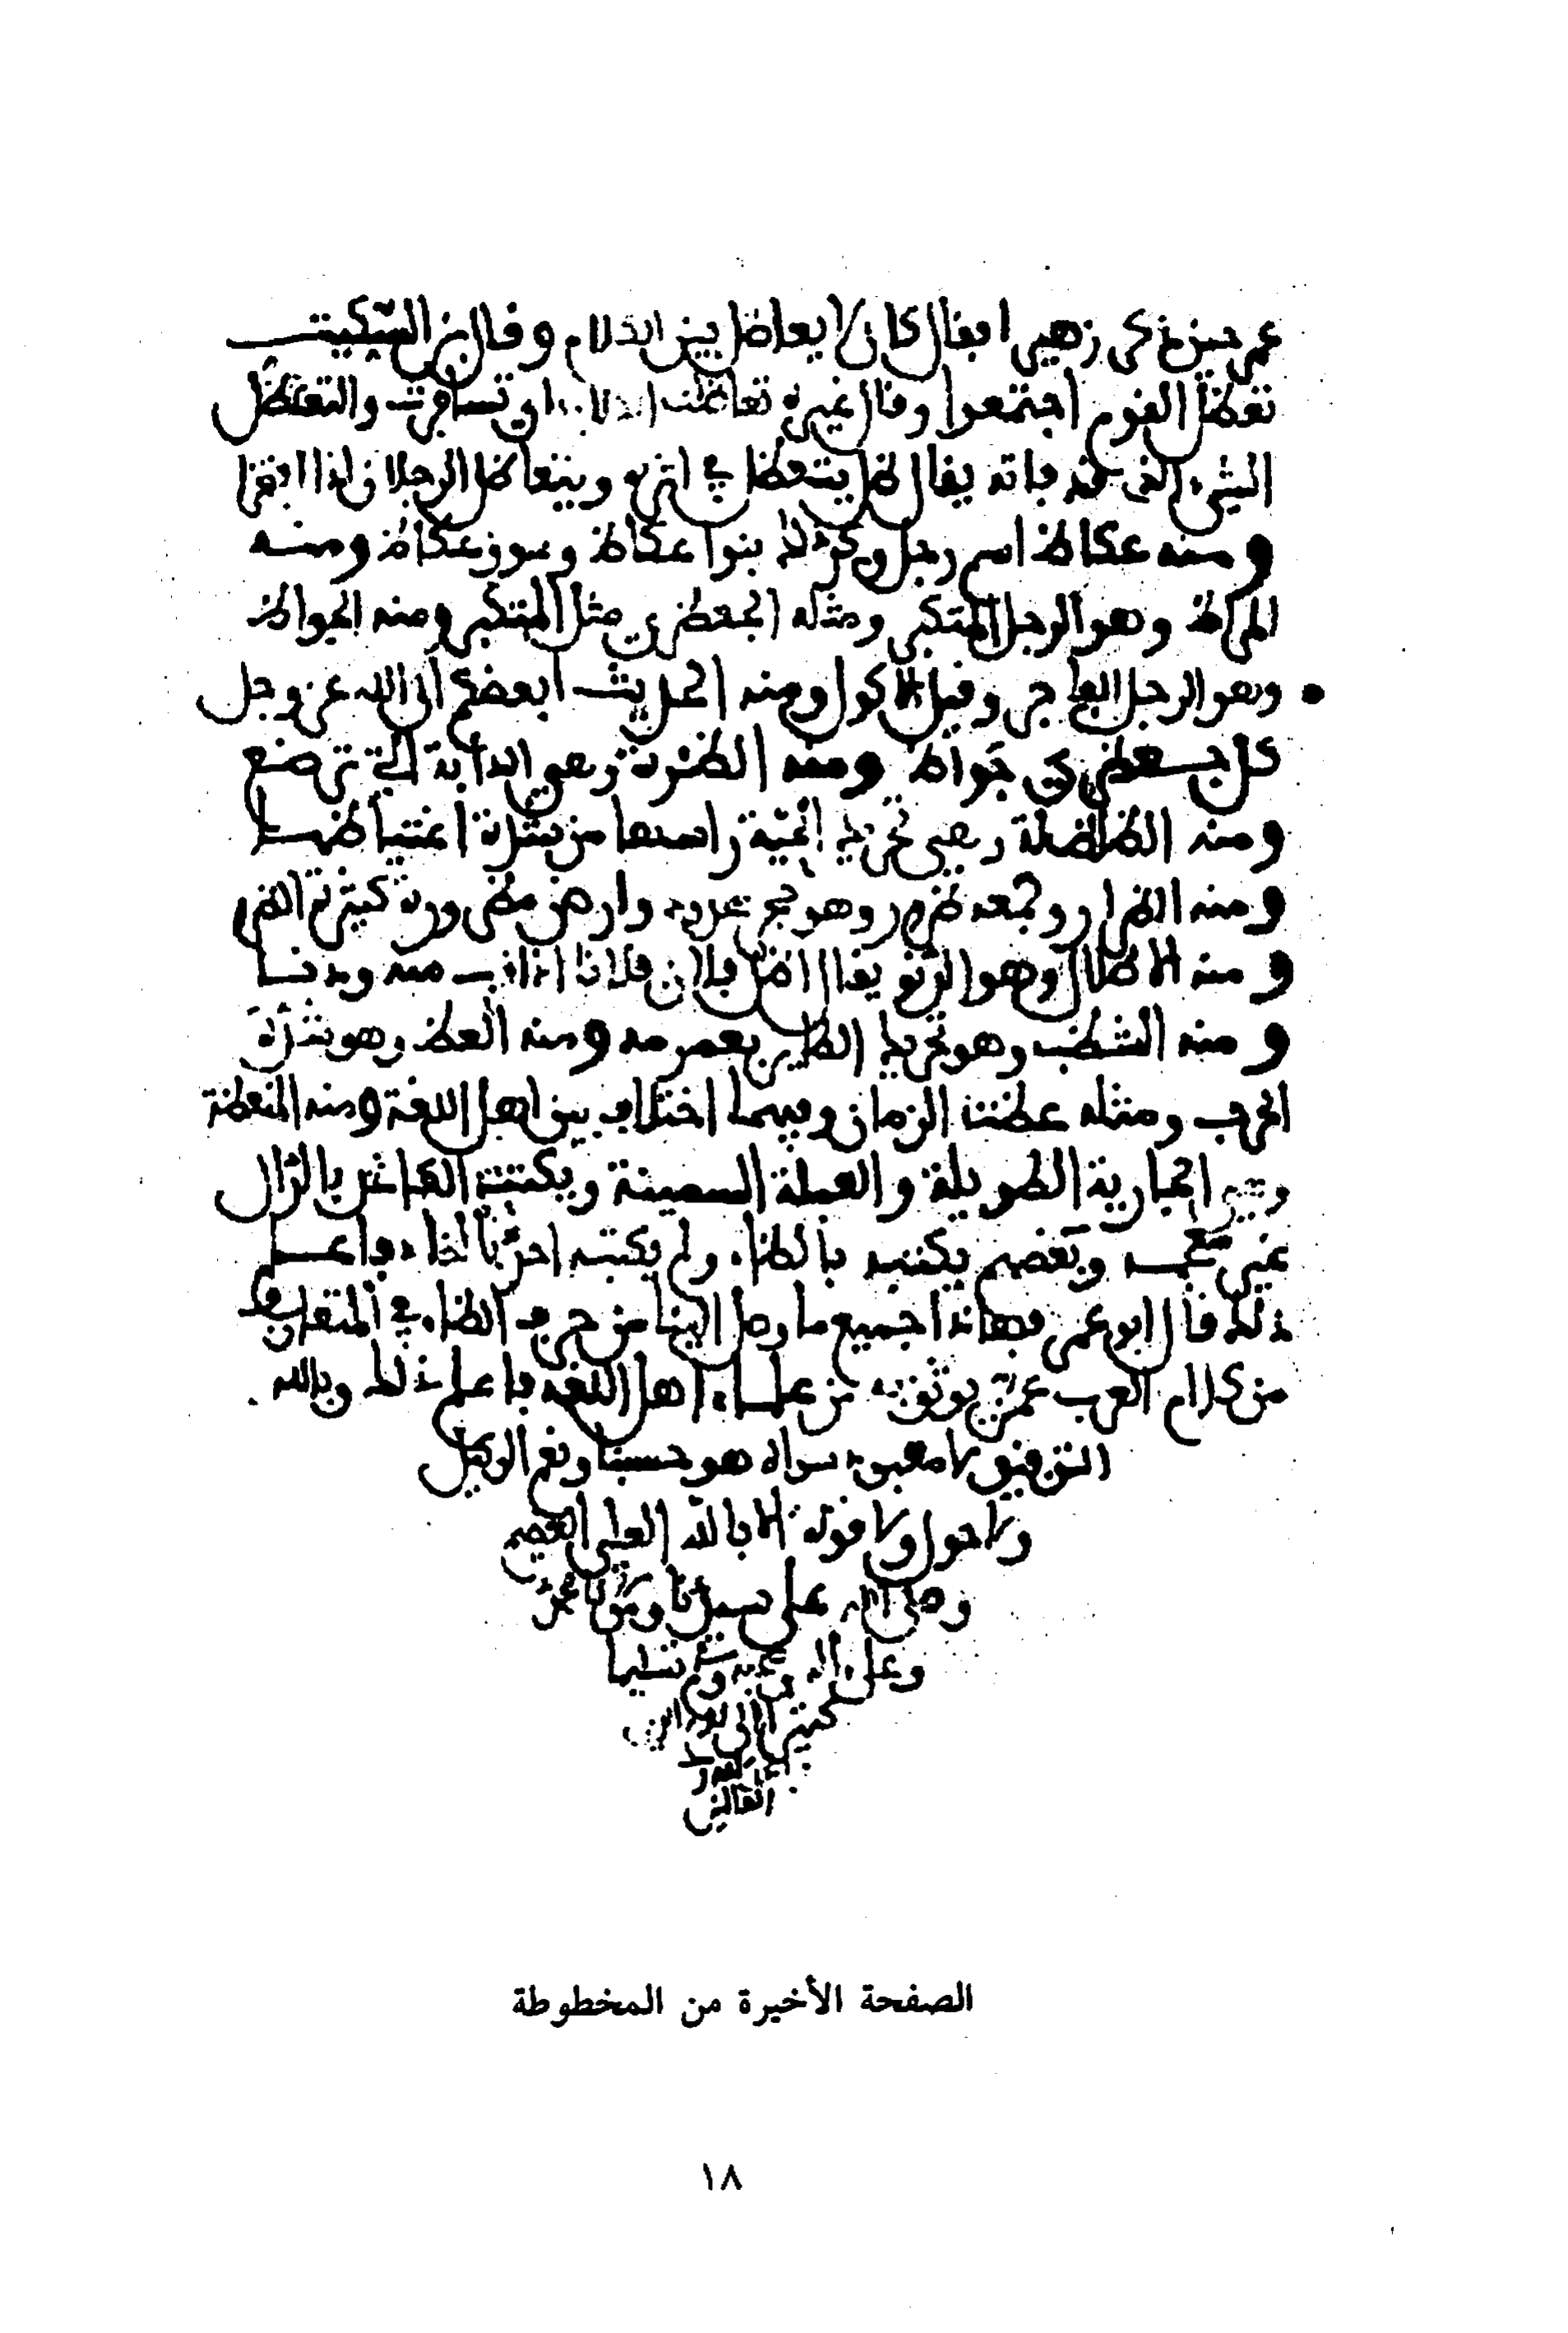 عمر حين ذكر زهيرا فقال كان لا يعاظل بين الكلام وقال ابن السكيت
تعظل القوم اجتمعوا وقال غيره تعاظلت الكلاب اي تسافدت والتعظل
الشيء يقال ظل يتعظل في اثره ويتعاظ الرجلان اذا افتخرا
ومنه عكاظ اسم رجل وكذلك بنوا عكاظ وسوق عكاظ ومنه
وهو الرجل المتكبر ومثله الجعظري مثل المتكبر ومنه الجواظ
وهو الرجل الفاجر وقيل الاكول ومنه الحديث ابغضكم الى الله عز وجل
كل جعظري جواظ ومنه الظئورة وهي الداية التي ترضع
ومنه الظلظلة وهي تحريك الحية راسها من شدة اغتياظها
ومنه الظرار وجمعه ظرور وهو حجر محدد وارض مظرورة كثيرة الظر
ومنه الاظلال وهو الدنو يقال اظل فلان فلانا اذا قرب منه ودنا
ومنه الشظف وهو تحريك ومنه العظ وهو شدة
الحرب ومثله عظتنا الزمان وفيهما اختلاف بين اهل اللغة ومنه المنعظة
وهي الجارية الطويلة والعبلة السمينة ويكتب الكاغد بالدال
غير معجمة وبعضهم يكتبه بالظاء ولم يكتبه احد بالذال فاعلم
ذلك قال ابو عمر فهاذا جميع ما وصل الينا من حرف الظاء في المتعارف
من كلام العرب عمن يوثق به من علماء اهل اللغة فاعلم ذلك وبالله
التوفيق لا معبود سواه هو حسبنا ونعم الوكيل
ولا حول ولا قوة الا بالله العلي العظيم
وصلى الله على سيدنا ومولانا محمد
وعلى اله وصحبه وسلم تسليما
كثيرا الى يوم الدين
والحمد لله رب
العالمين
الصفحة الأخيرة من المخطوطة
١٨